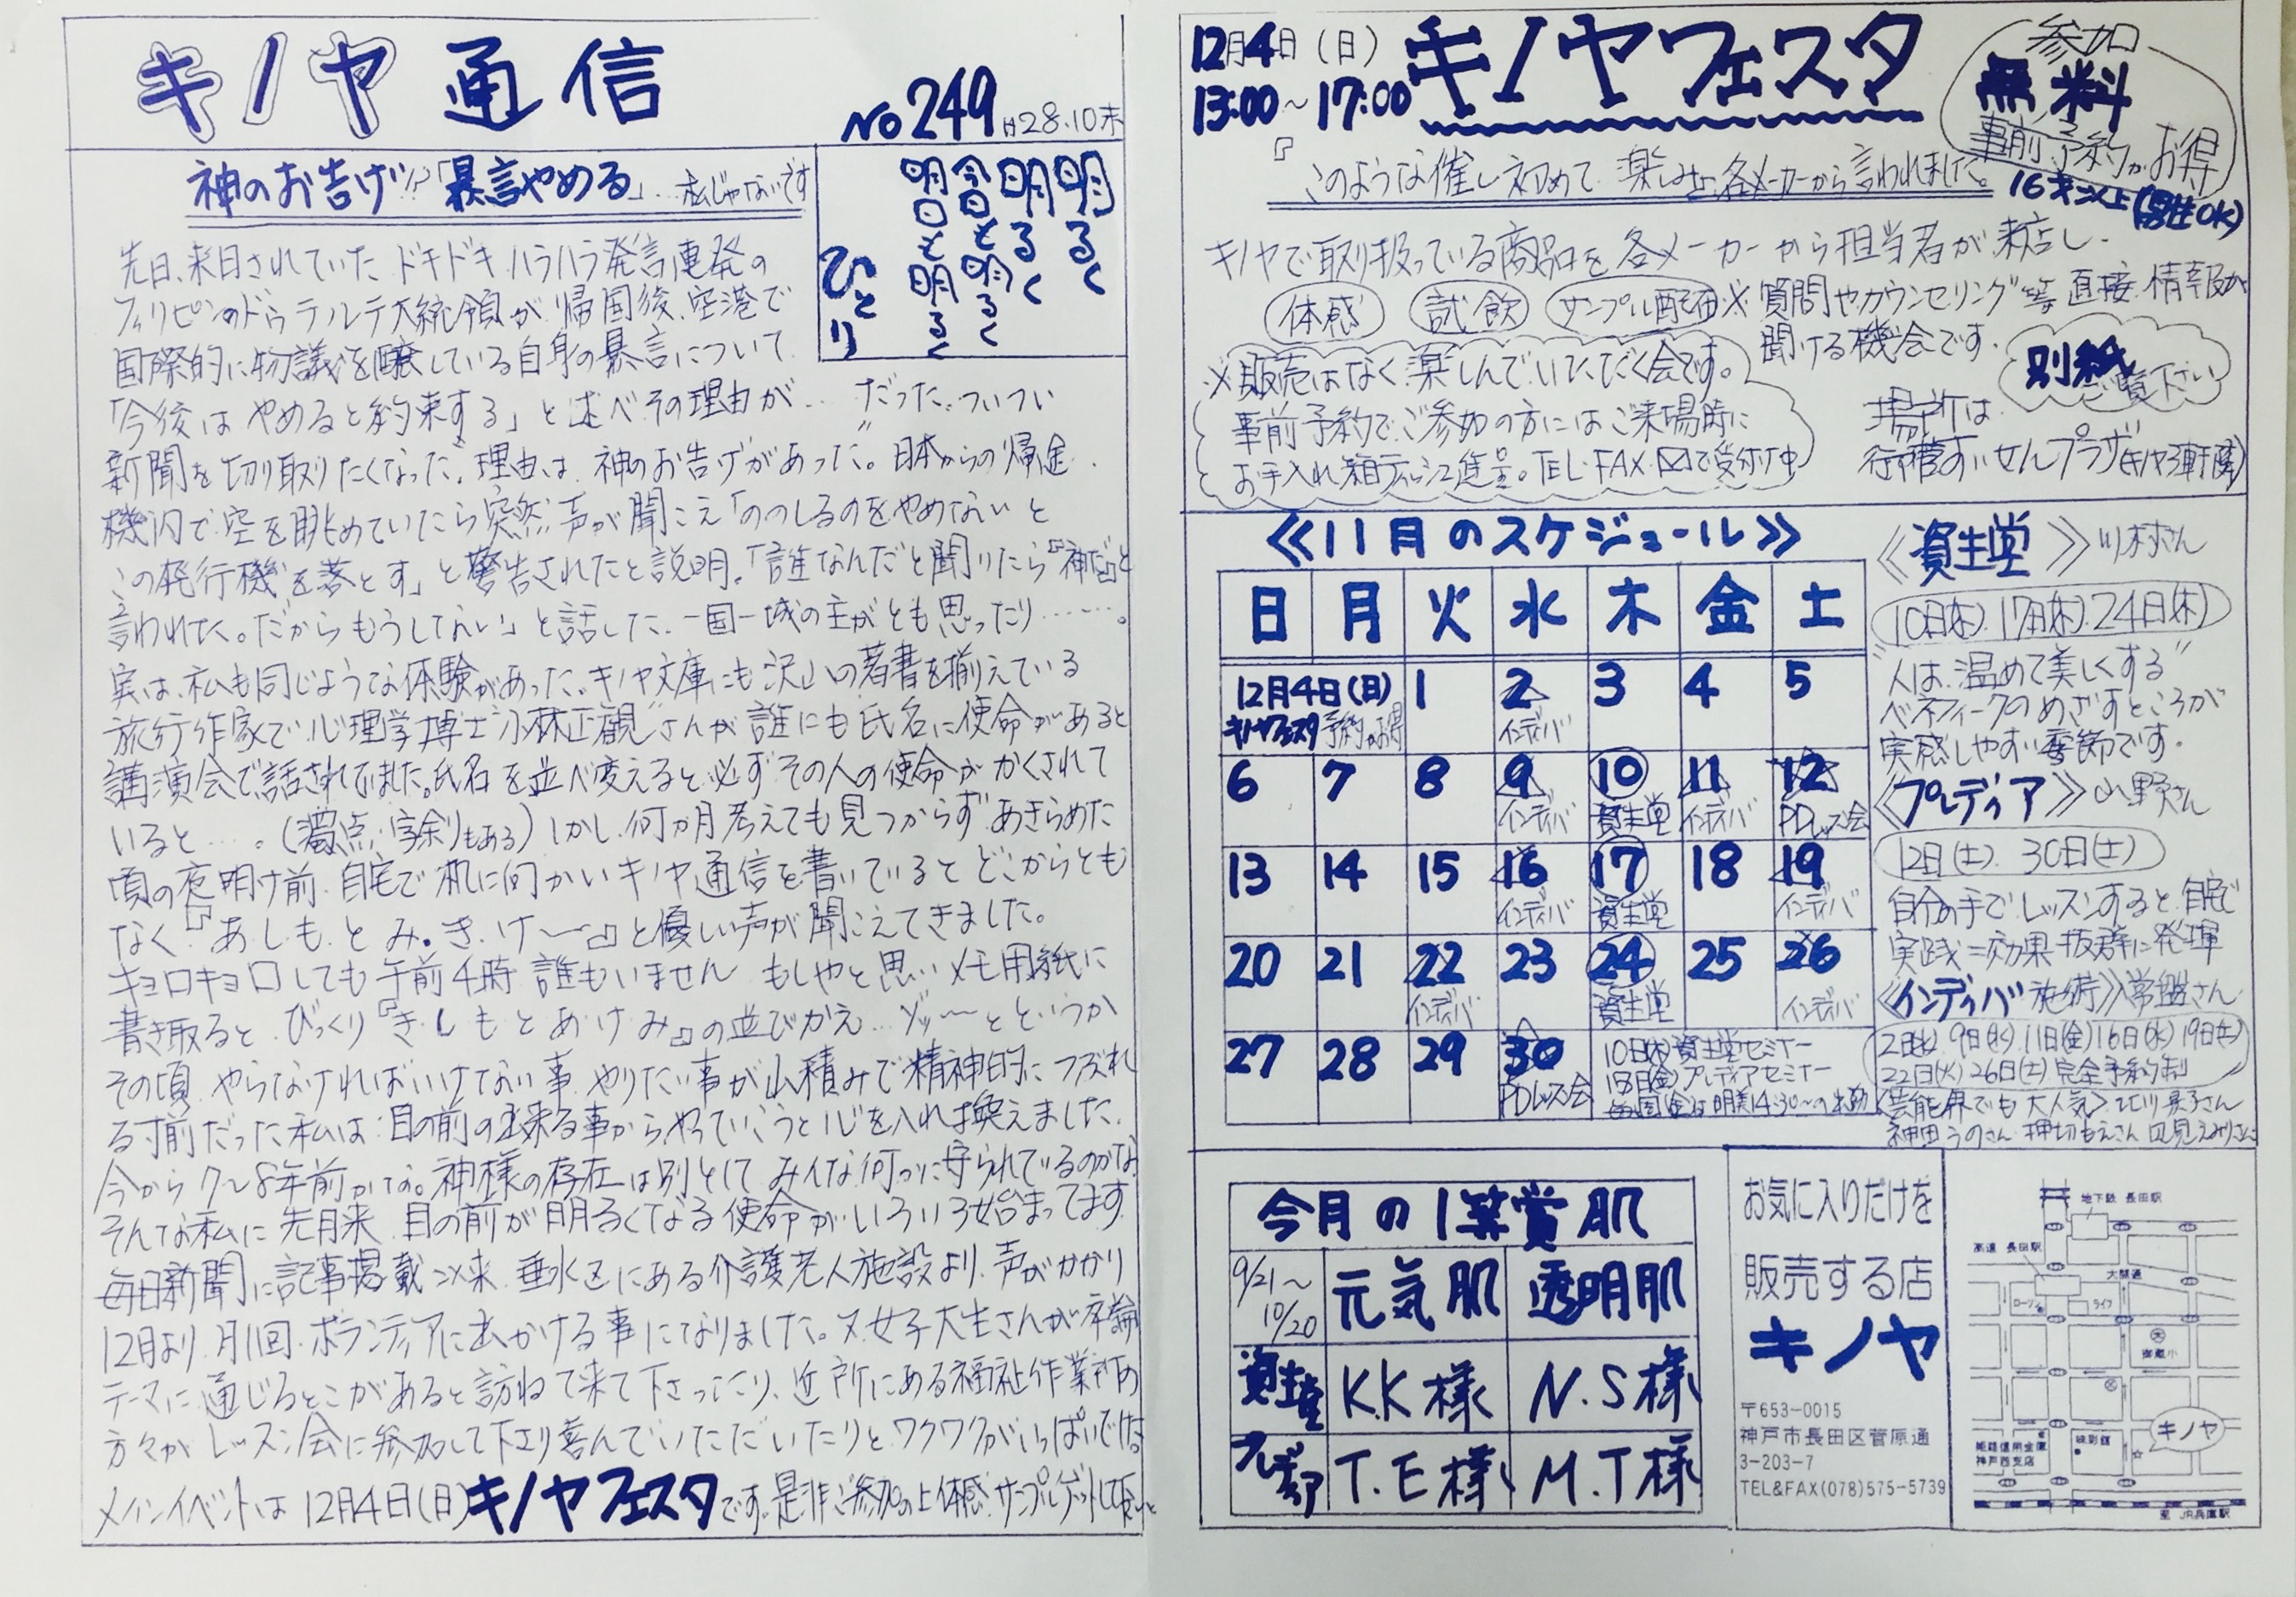 キノヤ通信
No 249 H28.10末
神のお告げ!?「暴言やめる」…私じゃないです
明るく
明るく
今日も明るく
明日も明るく
ひとり
先日、来日されていた ドキドキ ハラハラ発言連発の
フィリピンのドゥテルテ大統領が 帰国後、空港で
国際的に物議を醸している自身の暴言について
「今後は やめると約束する」と述べその理由が… だった。ついつい
新聞を切り取りたくなった。理由は、神のお告げがあった。日本からの帰途
機内で空を眺めていたら突然声が聞こえ「ののしるのをやめないと
この飛行機を落とす」と警告されたと説明。「誰なんだと聞いたら『神だ』と
言われた。だからもうしてない」と話した。一国一城の主がとも思ったり……。
実は、私も同じような体験があった。キノヤ文庫にも沢山の著書を揃えている
旅行作家で心理学博士“小林正観”さんが誰にも氏名に使命があると
講演会で話されてました。氏名を並べ変えると必ずその人の使命がかくされて
いると…。(濁点、字余りもある)しかし、何か月考えても見つからず あきらめた
頃の夜明け前、自宅で机に向かいキノヤ通信を書いていると どこからとも
なく『あ.し.も.と み.き.け〜』と優しい声が聞こえてきました。
キョロキョロしても午前4時 誰もいません もしやと思いメモ用紙に
書き取ると びっくり『きしもとあけみ』の並びかえ…ゾッ〜とというか
その頃、やらなければいけない事、やりたい事が山積みで精神的につぶれ
る寸前だった私は、目の前の出来る事からやっていこうと心を入れ換えました。
今から7〜8年前かな。神様の存在は別として みんな何かに守られているのかな
そんな私に 先月来 目の前が明るくなる使命がいろいろ始まってます。
毎日新聞に記事掲載以来、垂水区にある介護老人施設より、声がかかり
12月より月1回 ボランティアに出かける事になりました。又女子大生さんが卒論
テーマに通じるとこがあると訪ねて来て下さったり、近所にある福祉作業所の
方々がレッスン会に参加して下さり喜んでいただいたりと、ワクワクがいっぱいです。
メインイベントは 12月4日(日)キノヤフェスタです。是非ご参加の上体感、サンプルゲットして下さい
12月4日(日)
13:00〜17:00
キノヤフェスタ
参加
無料
事前予約がお得
16才以上(男性OK)
『このような催し初めて、楽しみと各メーカーから言われました。
キノヤで取り扱っている商品を各メーカーから担当者が来店し、
体感 試飲 サンプル配布 ※質問やカウンセリング等直接情報が
聞ける機会です。
別紙
ご覧下さい
※販売はなく楽しんでいただく会です。
事前予約でご参加の方にはご来場時に
お手入れ箱ティッシュ進呈。TEL・FAX・✉で受付中
場所は
行幸すいせんプラザ(キノヤ3軒隣)
≪11月のスケジュール≫
日 月 火 水 木 金 土
12月4日(日) キノヤフェスタ 予約がお得 1 2 インディバ 3 4 5
6 7 8 9 インディバ 10 資生堂 11 インディバ 12 PDレッスン会
13 14 15 16 インディバ 17 資生堂 18 19 インディバ
20 21 22 インディバ 23 24 資生堂 25 26 インディバ
27 28 29 30 PDレッスン会
10日(木)資生堂セミナー
18日(金)プレディアセミナー
毎週(金)は明美14:30〜の出勤
≪資生堂≫川村さん
10日(木).17日(木).24日(木)
“人は、温めて美しくする”
ベネフィークのめざすところが
実感しやすい季節です。
≪プレディア≫山野さん
12日(土). 30日(土)
自分の手でレッスンすると、自宅で
実践=効果 抜群に発揮
≪インディバ施術≫常盤さん
2日(水) 9日(水) 11日(金) 16日(水) 19日(土)
22日(火) 26日(土) 完全予約制
<芸能界でも大人気>北川景子さん
神田うのさん 押切もえさん 辺見えみりさん
今月の1等賞肌
9/21〜10/20 元気肌 透明肌
資生堂 K.K様 N.S様
プレディア T.E様 M.T様
お気に入りだけを
販売する店
キノヤ
〒653-0015
神戸市長田区菅原通
3-203-7
TEL&FAX(078)575-5739
地下鉄 長田駅
高速 長田駅
大開通
ローソン
ライフ
御蔵小
キノヤ
姫路信用金庫
神戸西支店
映彩館
至 JR兵庫駅